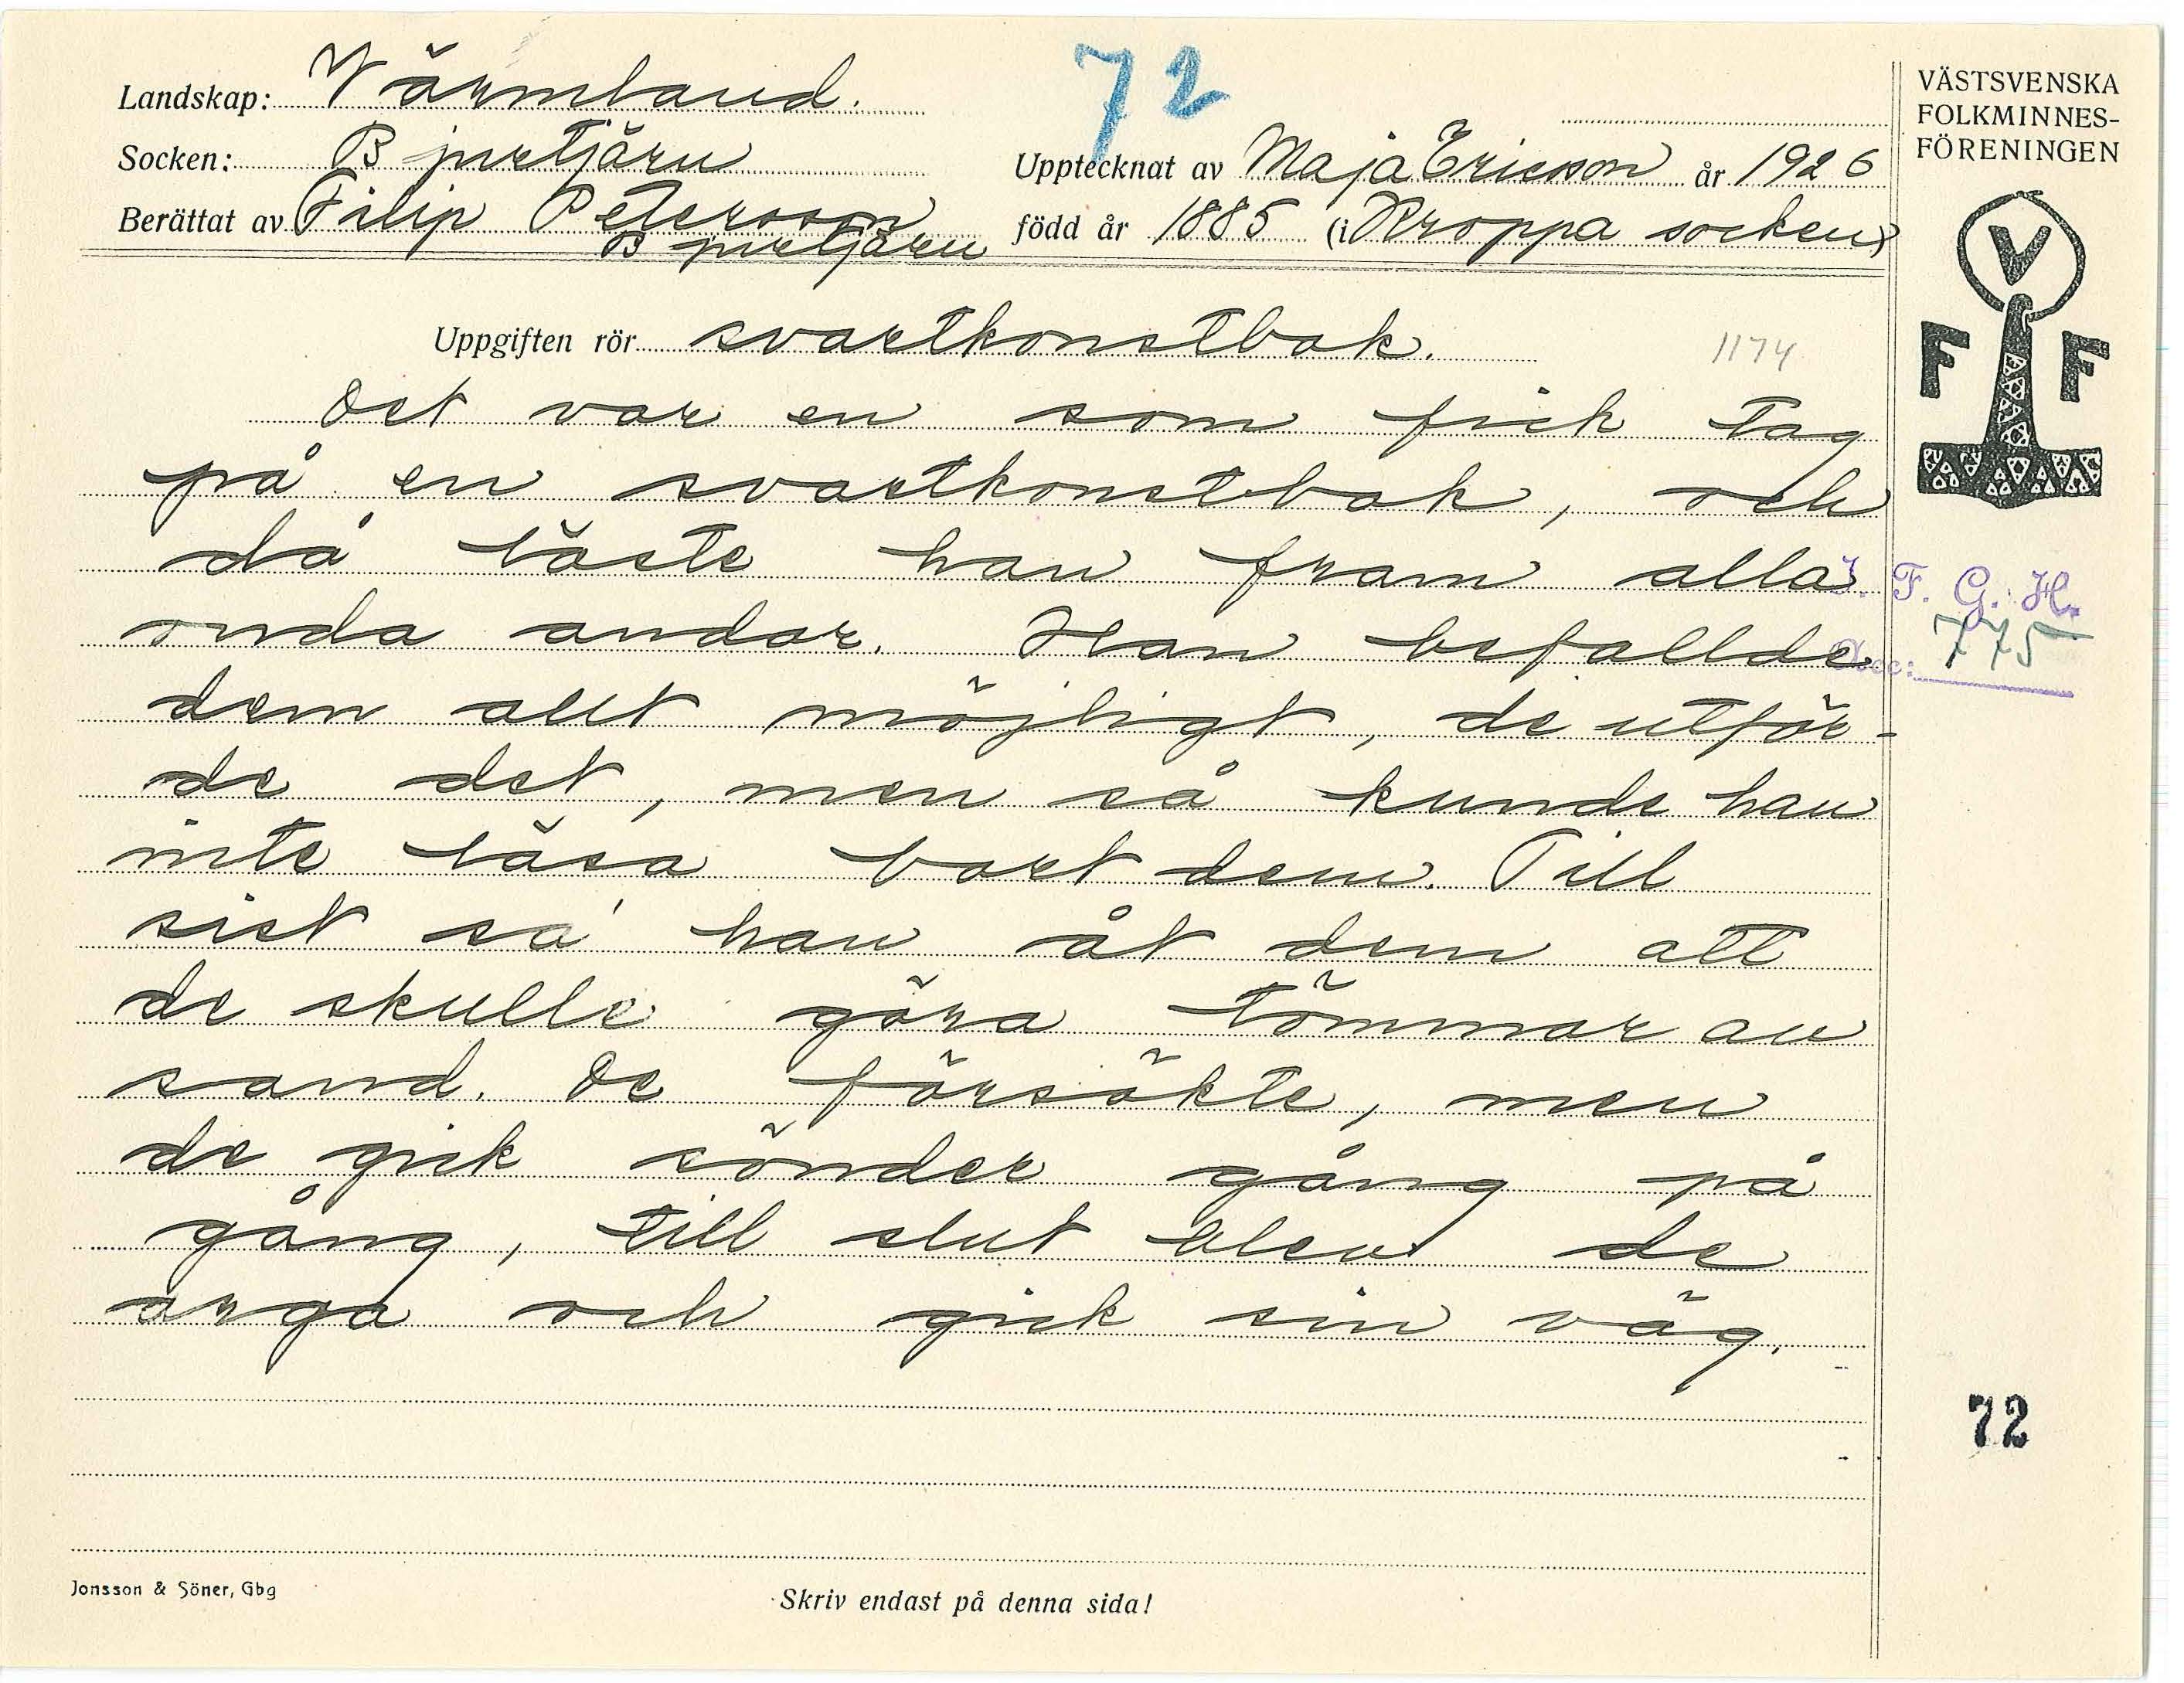 72
Landskap: Värmland.
VÄSTSVENSKA
FOLKMINNES-
FÖRENINGEN
Socken: Bjurtjärn
Upptecknat av Maja Ericson år 1926
Berättat av Filip Petersson
Bjurtjärn
född år 1885 (i Kroppa socken)
V
F F
Uppgiften rör svartkonstbok.
1174
Det var en som fick tag
på en svartkonstbok, och
då läste han fram alla
onda andar. Han befallde
dem allt möjligt, de utför-
de det, men så kunde han
inte läsa bort dem. Till
sist sa' han åt dem att
de skulle göra tömmar av
sand. De försökte, men
de gick sönder gång på
gång, till slut blev de
arga och gick sin väg.
I. F. G. H.
Acc: 775
72
Jonsson & Söner, Gbg
Skriv endast på denna sida!